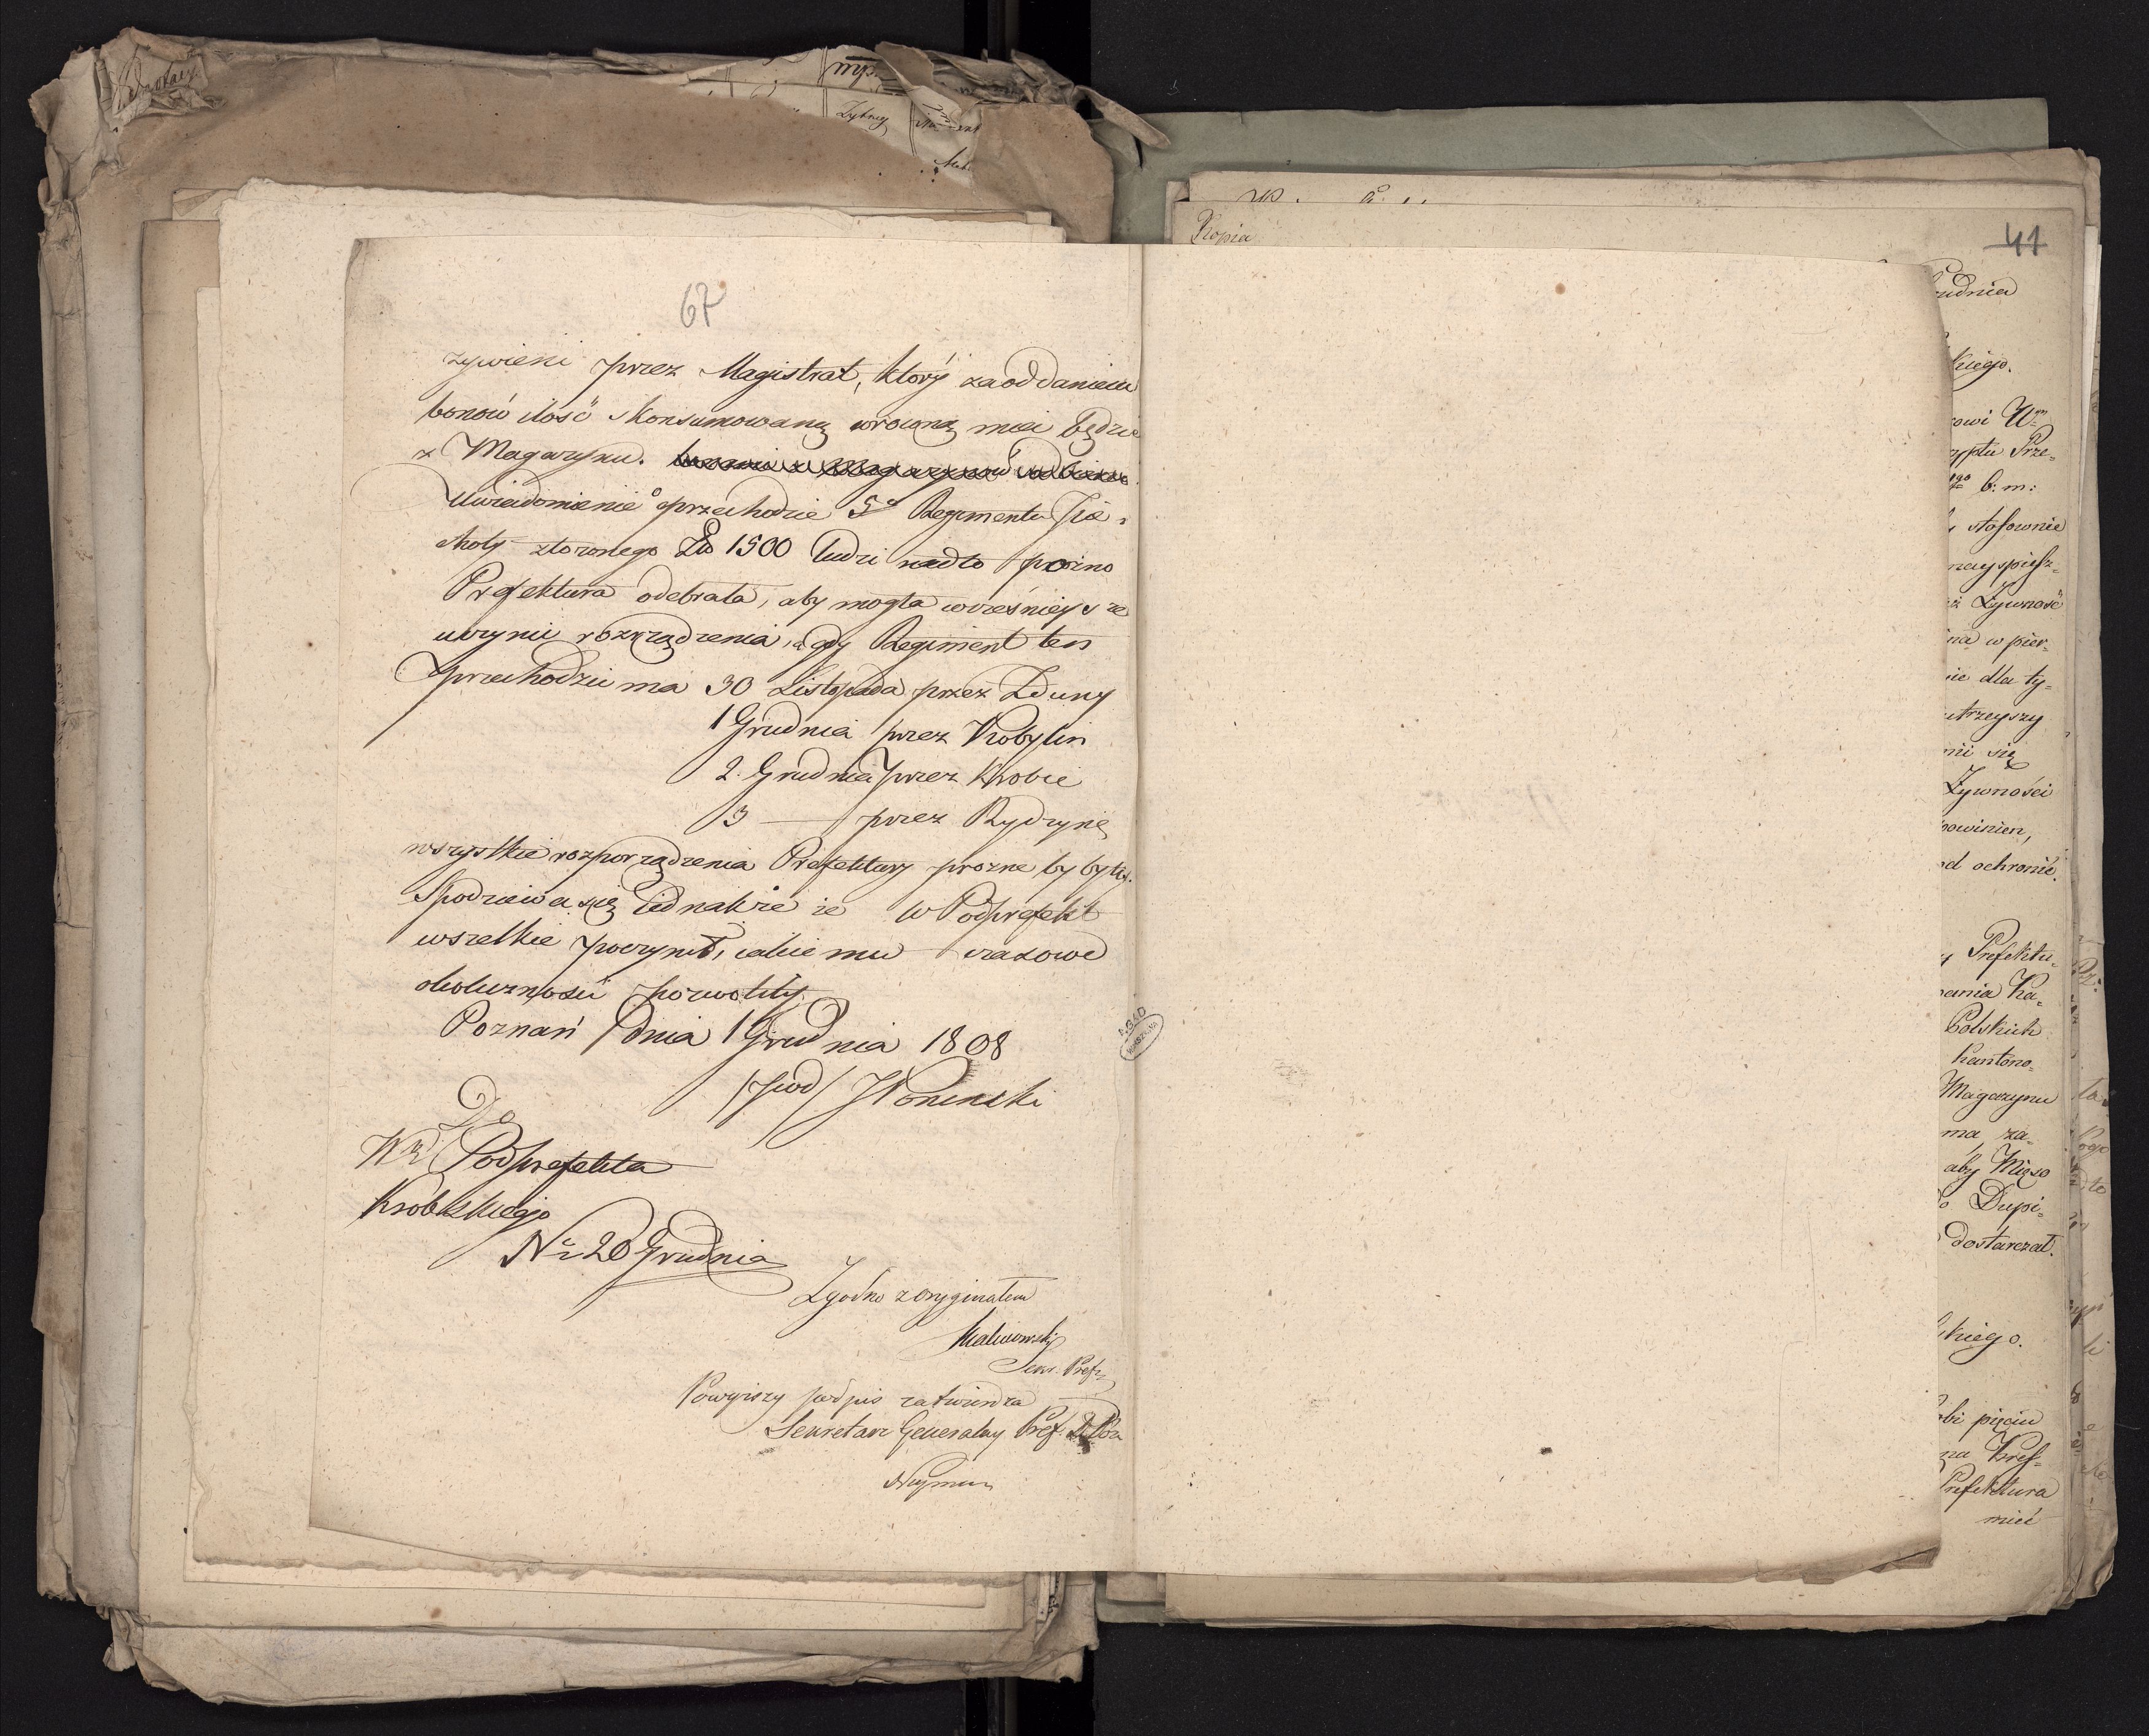 67
zywieni przez Magistrat, który za oddaniem
bonów ilość skonsumowaną wrowną miei będzie
z Magazynu.
Uwiadomienie o przechodzie 5° Regimentu Pie-
choty złożonego Do 1500 ludzi nadto pozno
Prefektura odebrała, aby mogła wcześniejsze
uczynić rozrządzenia, a gdy Regiment ten
przechodzić ma 30 Listopada przez Zduny
1 Grudnia przez Kobylin
2. Grudnia przez Krobie
3 — przez Rydzynę
wszystkie rozporządzenia Prefektury prozne by były.
Spodziewa się iednakże że W Podprefekt
wszelkie poczynił, iakie mu czasowe
okoliczności pozwoliły.
Poznań dnia 1 Grudnia 1808
/pod/ J Poninski
Do
Wgo Podprefekta
Krobskiego
Nro 20 Grudnia
Zgodno z oryginałem
Malinowski
Sekr. Pref.
Powyiszy podpis zatwierdza
Sekretarz Generalny Pref. D. Poz
Neyman
Kopia
41
Grudnia
kiego.
owi Wmu
yptu Prze-
go b: m:
stosownie
nayspiesz-
Żywność
na w pier-
ie dla ty-
trzeyszy
ni się
Żywności
powinien,
od ochronić.
Prefektu-
ania Ka-
Polskich
Kantono-
Magazynu
ma, za-
aby Mięso
o Dupi-
dostarczał.
skiego.
obi pięciu
na Kref-
Prefektura
mieć